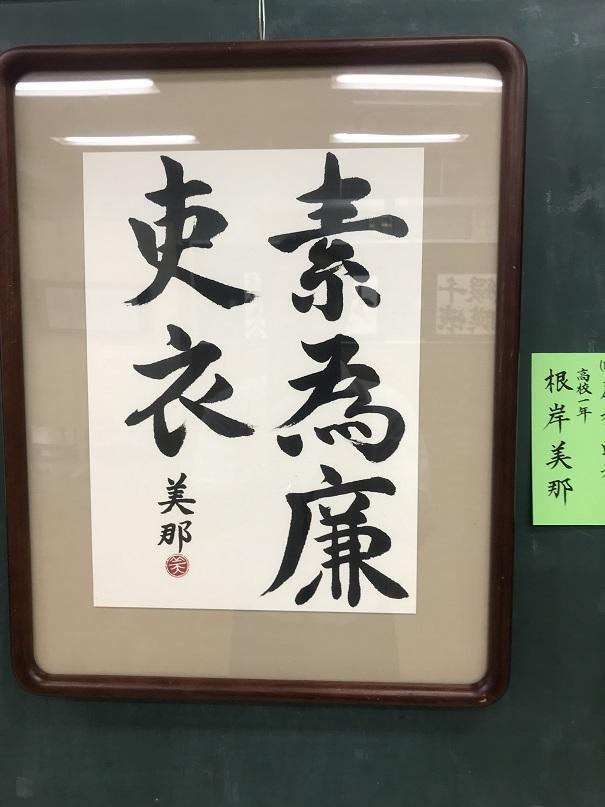 素為廉
吏衣
美那
美
高校一年
根岸美那